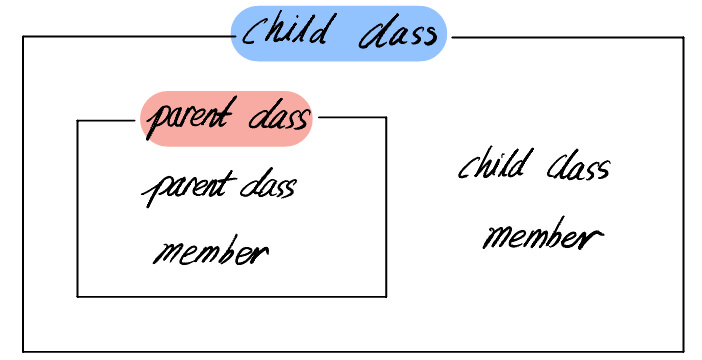 child class
parent class
parent class
member
child class
member